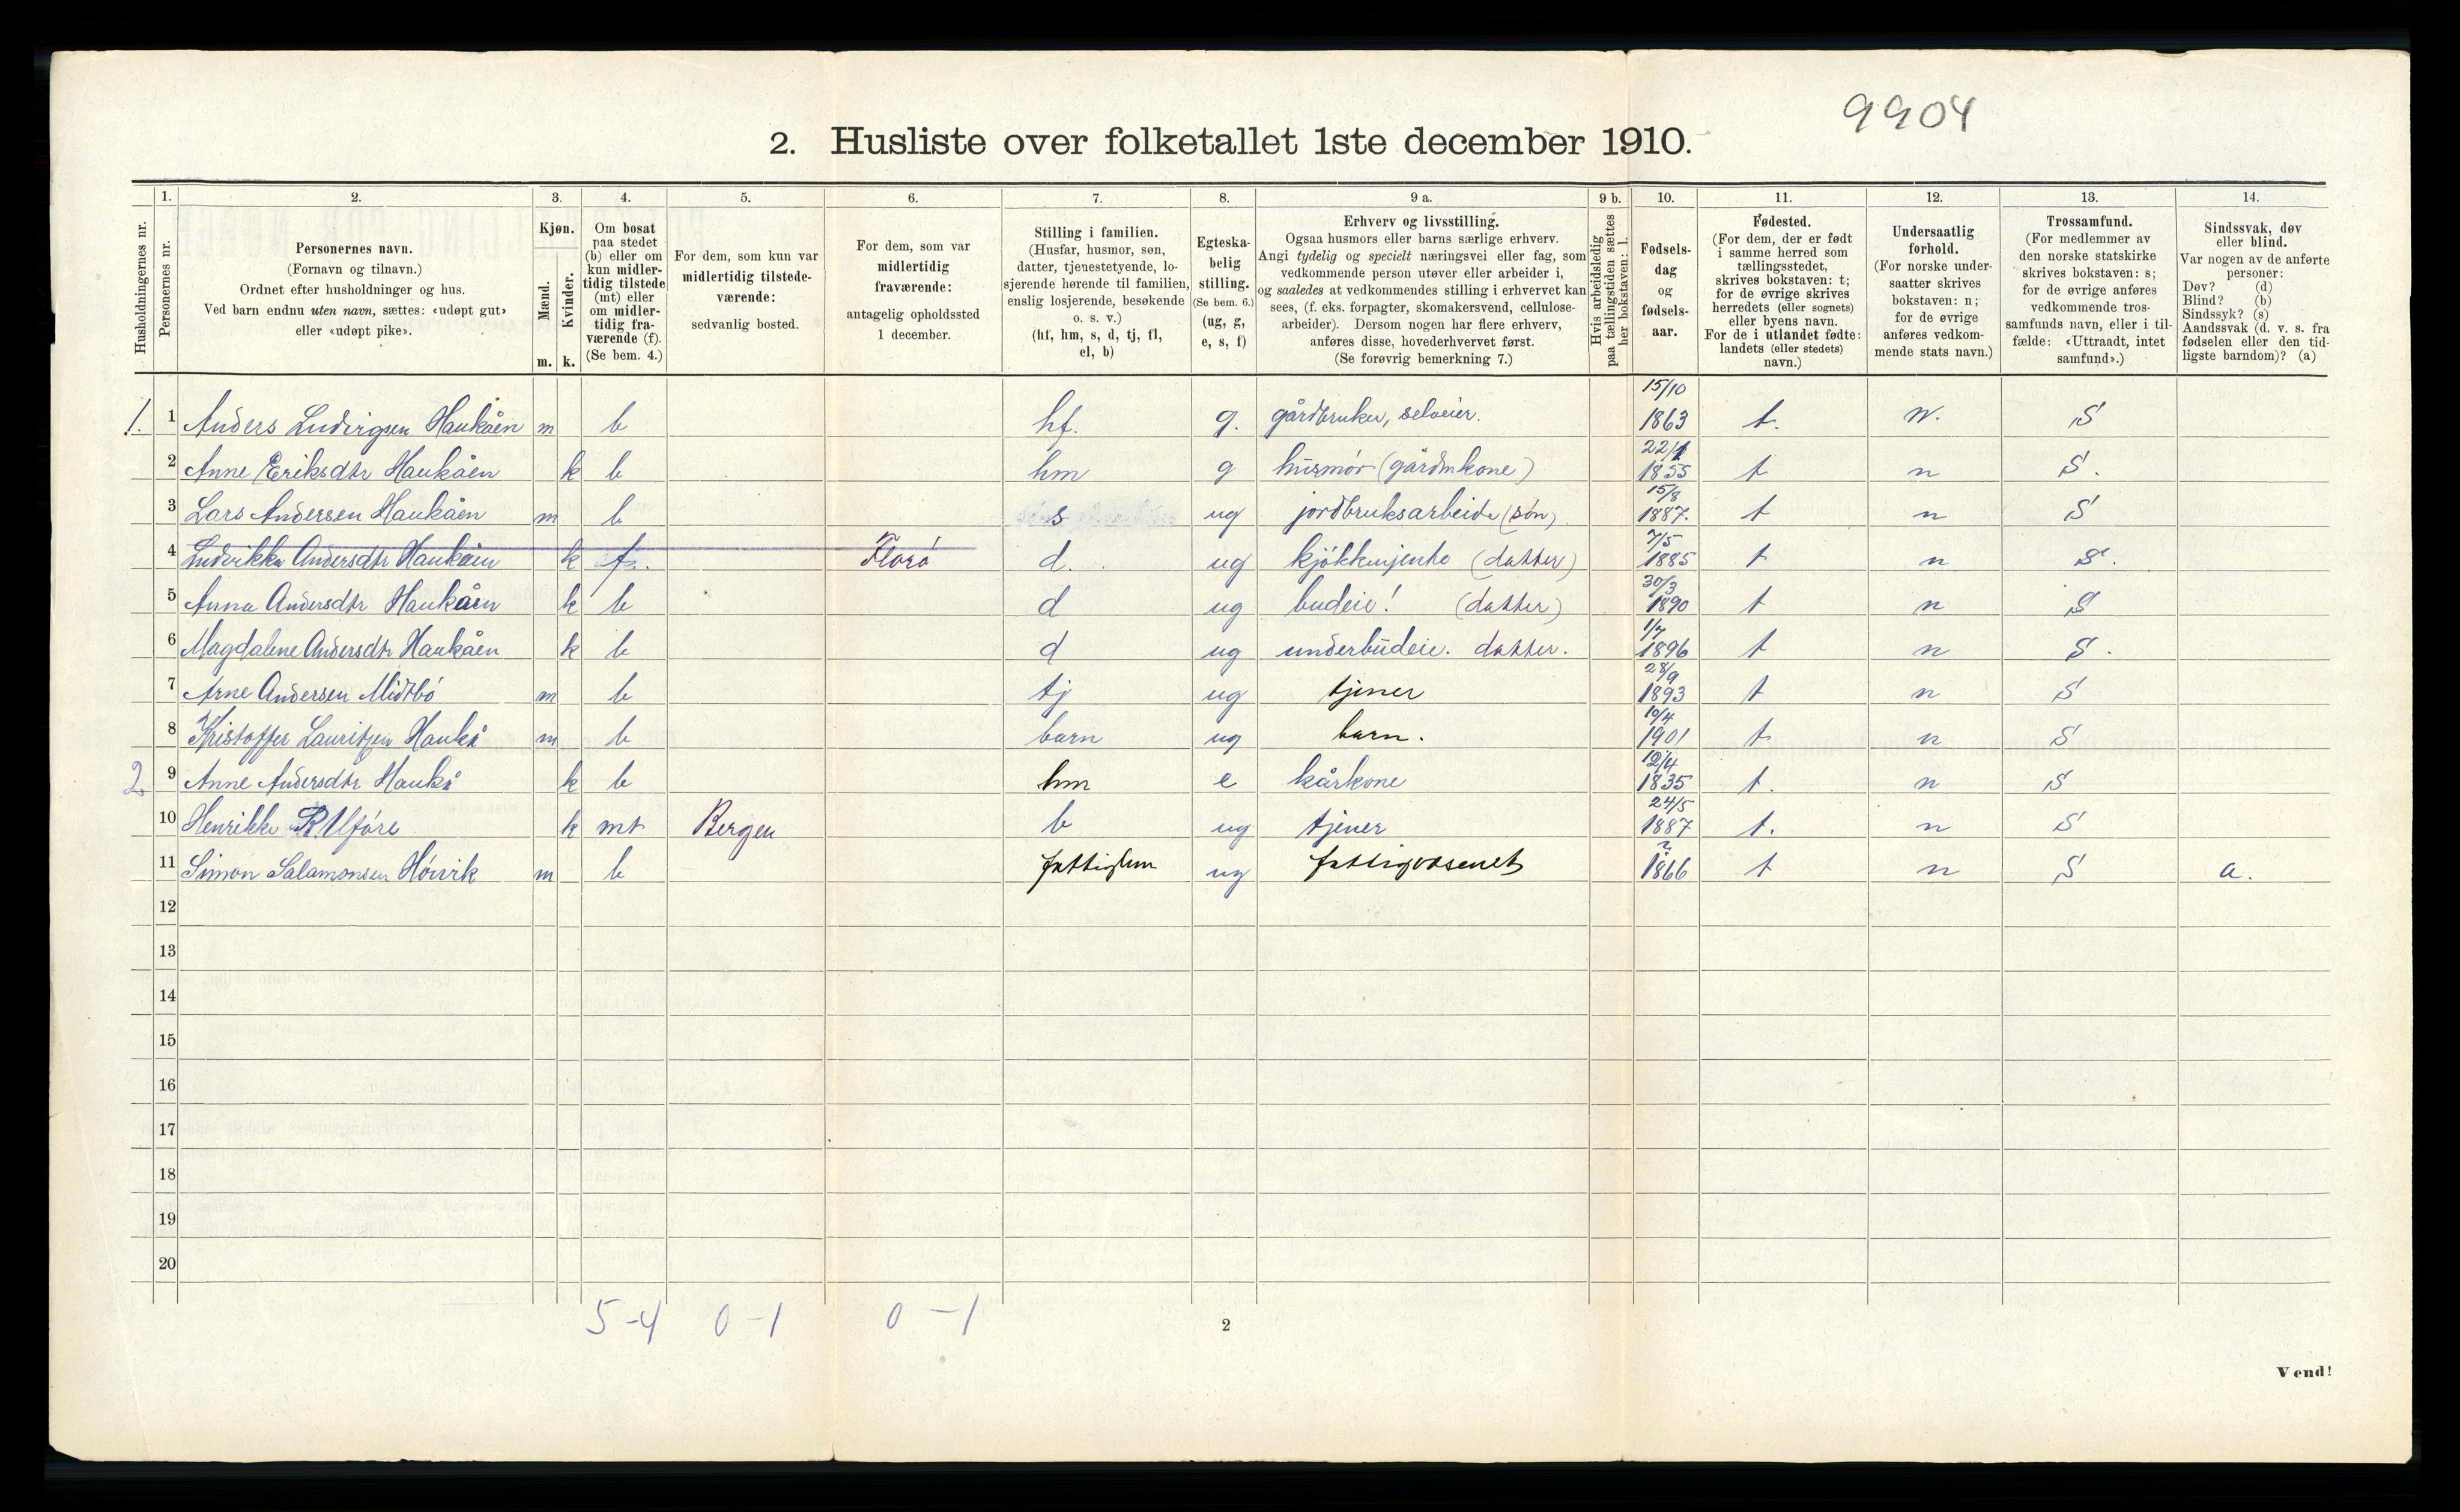 9904
2. Husliste over folketallet 1ste december 1910.
1. 2. 3. 4. 5. 6. 7. 8. 9 a. 9 b. 10. 11. 12. 13. 14.
Husholdningernes nr.
Personernes nr.
Personernes navn.
(Fornavn og tilnavn.)
Ordnet efter husholdninger og hus.
Ved barn endnu uten navn, sættes: «udøpt gut»
eller «udøpt pike».
Kjøn.
Mænd.
Kvinder.
m. k.
Om bosat
paa stedet
(b) eller om
kun midler-
tidig tilstede
(mt) eller
om midler-
tidig fra-
værende (f).
(Se bem. 4.)
For dem, som kun var
midlertidig tilstede-
værende:
sedvanlig bosted.
For dem, som var
midlertidig
fraværende:
antagelig opholdssted
1 december.
Stilling i familien.
(Husfar, husmor, søn,
datter, tjenestetyende, lo-
sjerende hørende til familien,
enslig losjerende, besøkende
o. s. v.)
(hf, hm, s, d, tj, fl,
el, b)
Egteska-
belig
stilling.
(Se bem. 6.)
(ug, g,
e, s, f)
Erhverv og livsstilling.
Ogsaa husmors eller barns særlige erhverv.
Angi tydelig og specielt næringsvei eller fag, som
vedkommende person utøver eller arbeider i,
og saaledes at vedkommendes stilling i erhvervet kan
sees, (f. eks. forpagter, skomakersvend, cellulose-
arbeider). Dersom nogen har flere erhverv,
anføres disse, hovederhvervet først.
(Se forøvrig bemerkning 7.)
Hvis arbeidsledig
paa tællingstiden sættes
her bokstaven: l.
Fødsels-
dag
og
fødsels-
aar.
Fødested.
(For dem, der er født
i samme herred som
tællingsstedet,
skrives bokstaven: t;
for de øvrige skrives
herredets (eller sognets)
eller byens navn.
For de i utlandet fødte:
landets (eller stedets)
navn.)
Undersaatlig
forhold.
(For norske under-
saatter skrives
bokstaven: n;
for de øvrige
anføres vedkom-
mende stats navn.)
Trossamfund.
(For medlemmer av
den norske statskirke
skrives bokstaven: s;
for de øvrige anføres
vedkommende tros-
samfunds navn, eller i til-
fælde: «Uttraadt, intet
samfund».)
Sindssvak, døv
eller blind.
Var nogen av de anførte
personer:
Døv? (d)
Blind? (b)
Sindssyk? (s)
Aandssvak (d. v. s. fra
fødselen eller den tid-
ligste barndom)? (a)
1. 1 Anders Ludvigsen Haukåen m b hf. g. gårdbruker, selveier. 15/10 1863 t. n. S
2 Anne Eriksdtr Haukåen k b hm g husmór (gårdmkone) 22/1 1855 t n S.
3 Lars Andersen Haukåen m b s ug jordbruksarbeide (són) 15/8 1887. t n S
4 Ludvikka Andersdtr Haukåen k f. Floró d. ug kjókkenjente (datter) 7/5 1885 t n S.
5 Anna Andersdtr Haukåen k b d ug budeie! (datter) 30/3 1890 t n S
6 Magdalene Andersdtr Haukåen k b d ug underbudeie. datter. 1/7 1896 t n S.
7 Arne Andersen Midtbó m b tj ug tjener 28/9 1893 t n S
8 Kristoffer Lauritzen Haukå m b barn ug barn. 10/4 1901 t n S
2 9 Anne Andersdtr Haukå k b hm e kårkone 12/4 1835 t. n S
10 Henrikke k mt Bergen b ug tjener 24/5 1887 t. n S
11 Simon Salamonsen Hóivik m b fattiglem ug ? 1866 t n S a.
12
13
14
15
16
17
18
19
20
5-4 0-1 0-1
2
Vend!